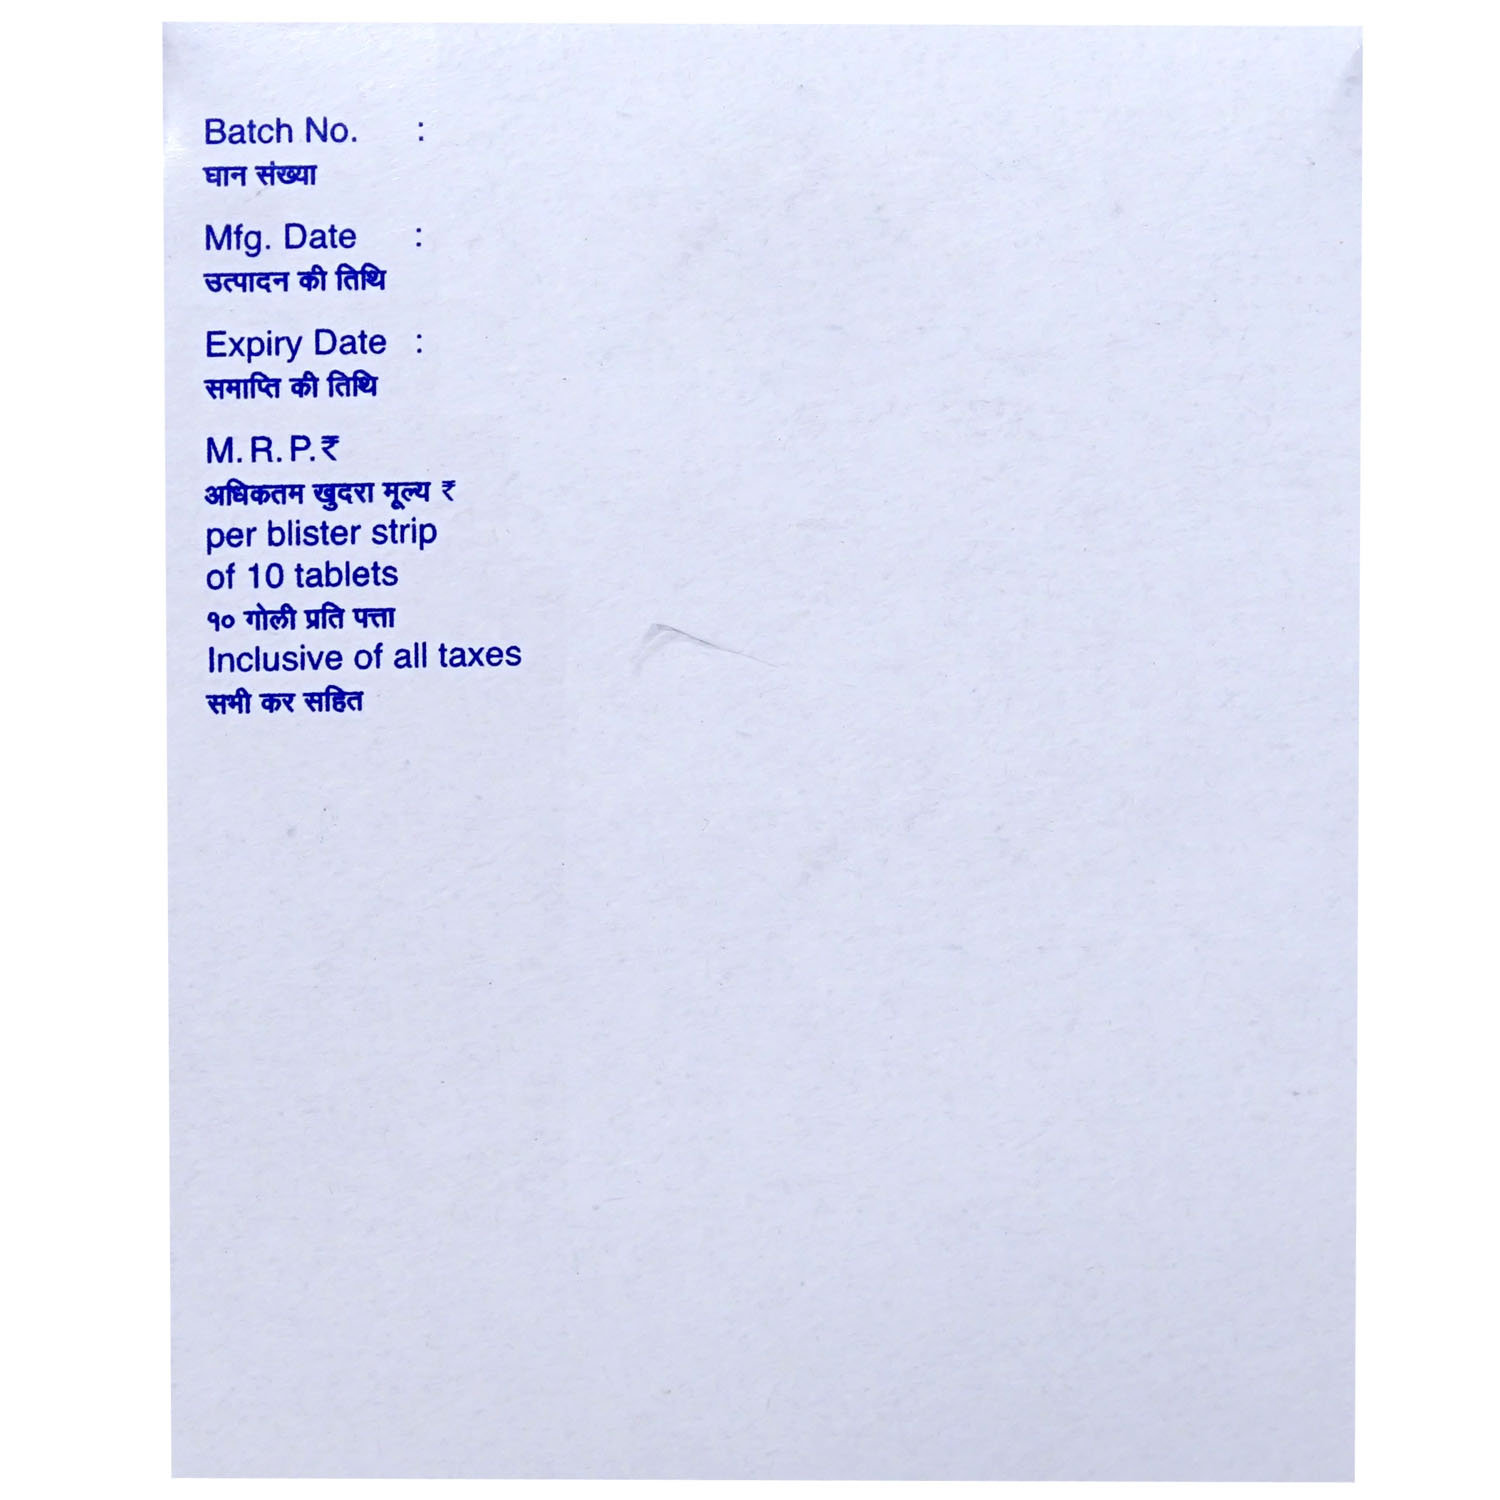 Batch No. :
घान संख्या
Mfg. Date :
उत्पादन की तिथि
Expiry Date :
समाप्ति की तिथि
M.R.P.₹
अधिकतम खुदरा मूल्य ₹
per blister strip
of 10 tablets
१० गोली प्रति पत्ता
Inclusive of all taxes
सभी कर सहित